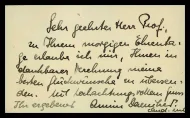 Sehr geehrter Herr Prof.,
zu Ihrem morgigen Ehrenta-
ge erlaube ich mir, Ihnen in
dankbarer Verehrung meine
besten Glückwünsche zu übersen-
den. Mit hochachtungsvollem Gruss
Ihr ergebener Armin